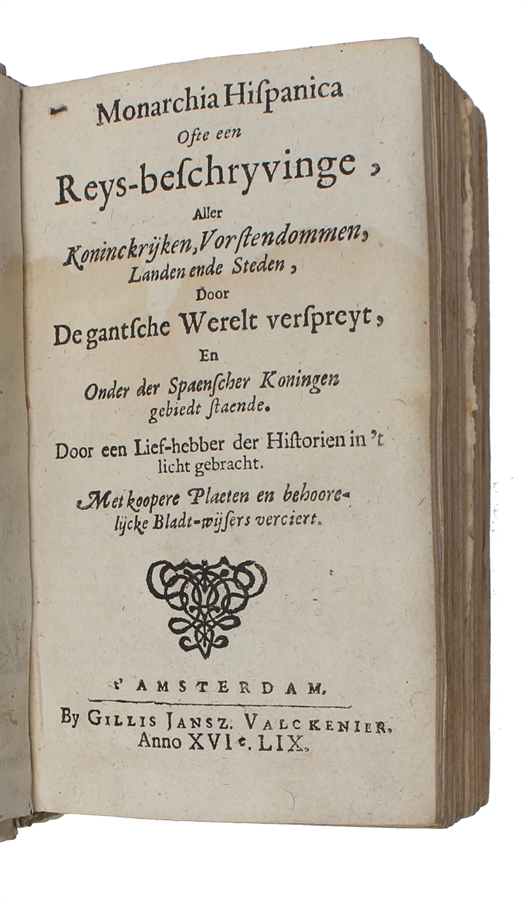 Monarchia Hiſpanica
Ofte een
Reys-beſchryvinge,
Aller
Koninckrijken, Vorſtendommen,
Landen ende Steden,
Door
De gantſche Werelt verſpreyt,
En
Onder der Spaenſcher Koningen
gebiedt ſtaende.
Door een Lief-hebber der Hiſtorien in 't
licht gebracht.
Met koopere Plaeten en behoore-
lijcke Bladt-wijſers verciert.
t' AMSTERDAM.
By GILLIS JANSZ. VALCKENIER.
Anno XVI c. LIX.